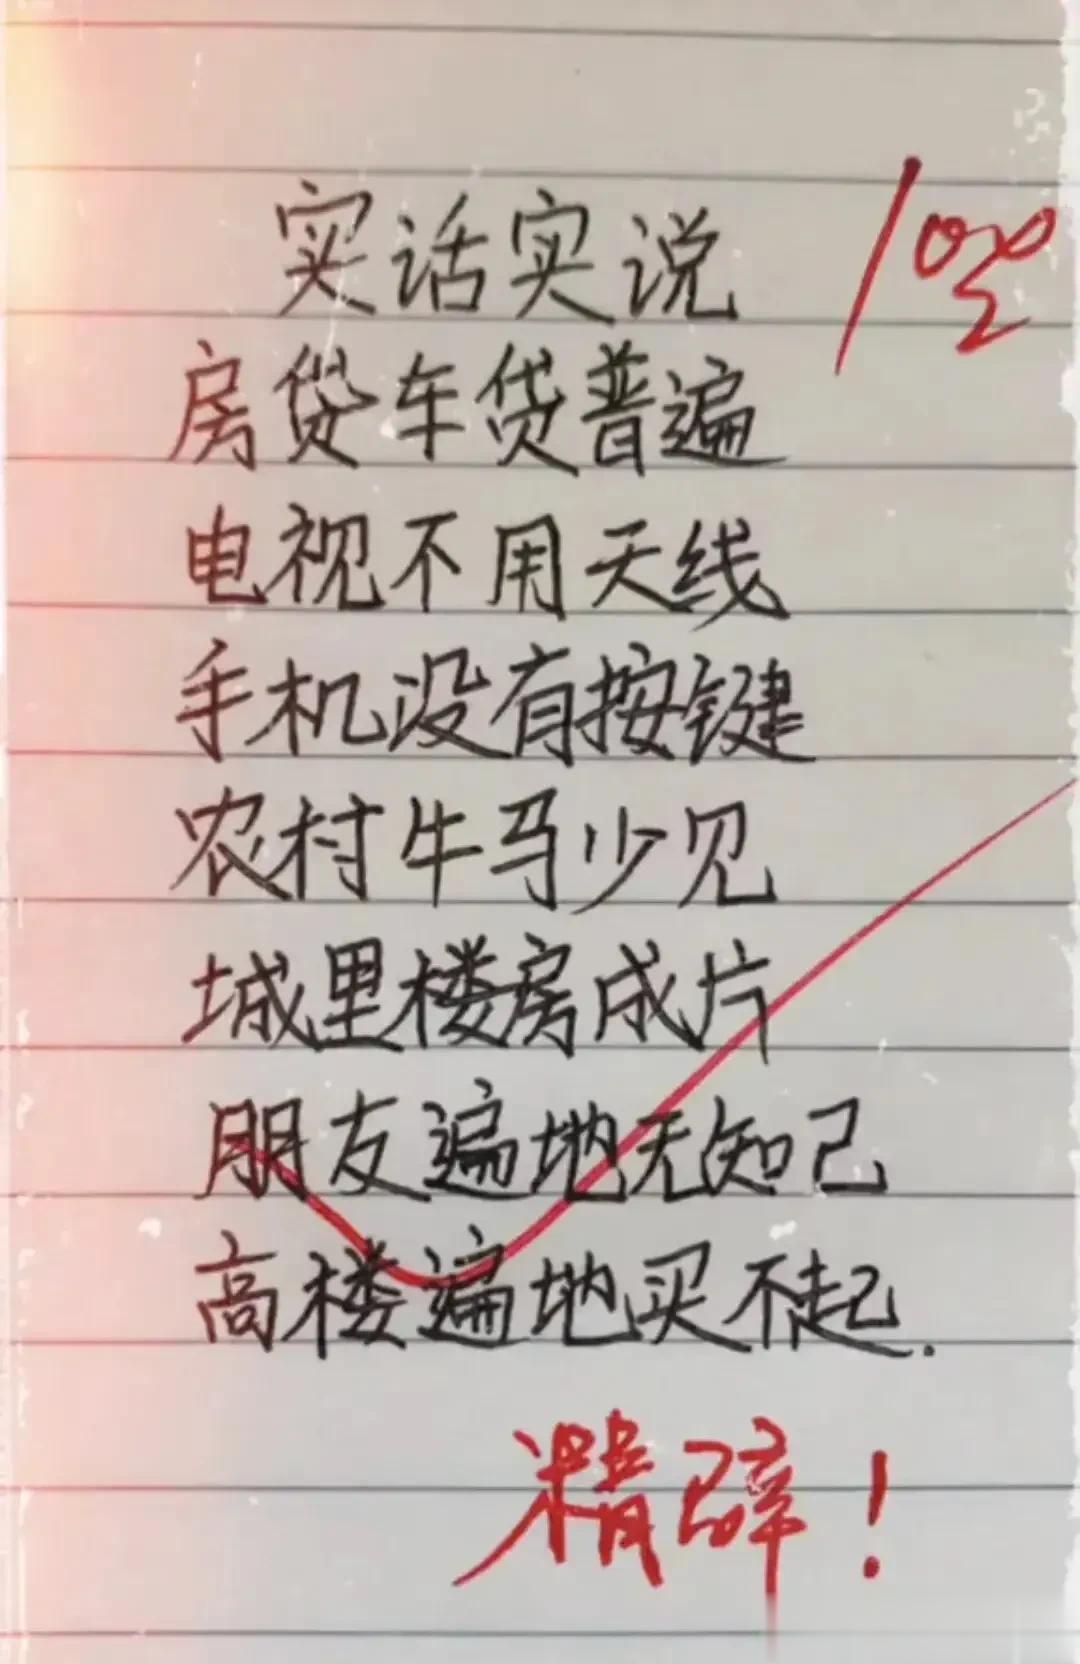 实话实说
100
房贷车贷普遍
电视不用天线
手机没有按键
农村牛马少见
城里楼房成片
朋友遍地无知己
高楼遍地买不起.
精辟！